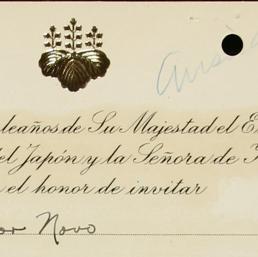 leaños de Su Majestad el E
del Japón y la Señora de
n el honor de invitar
or Novo